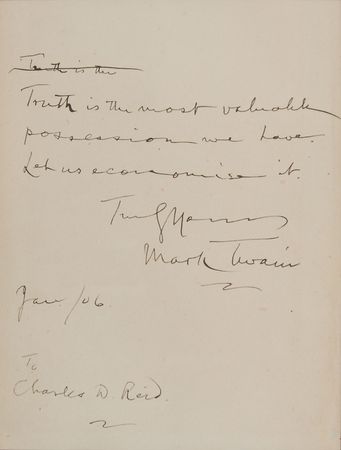 Truth is the
Truth is the most valuable
possession we have.
Let us economise it.
Truly Yours
Mark Twain
Jan /06.
To
Charles D. Reid.